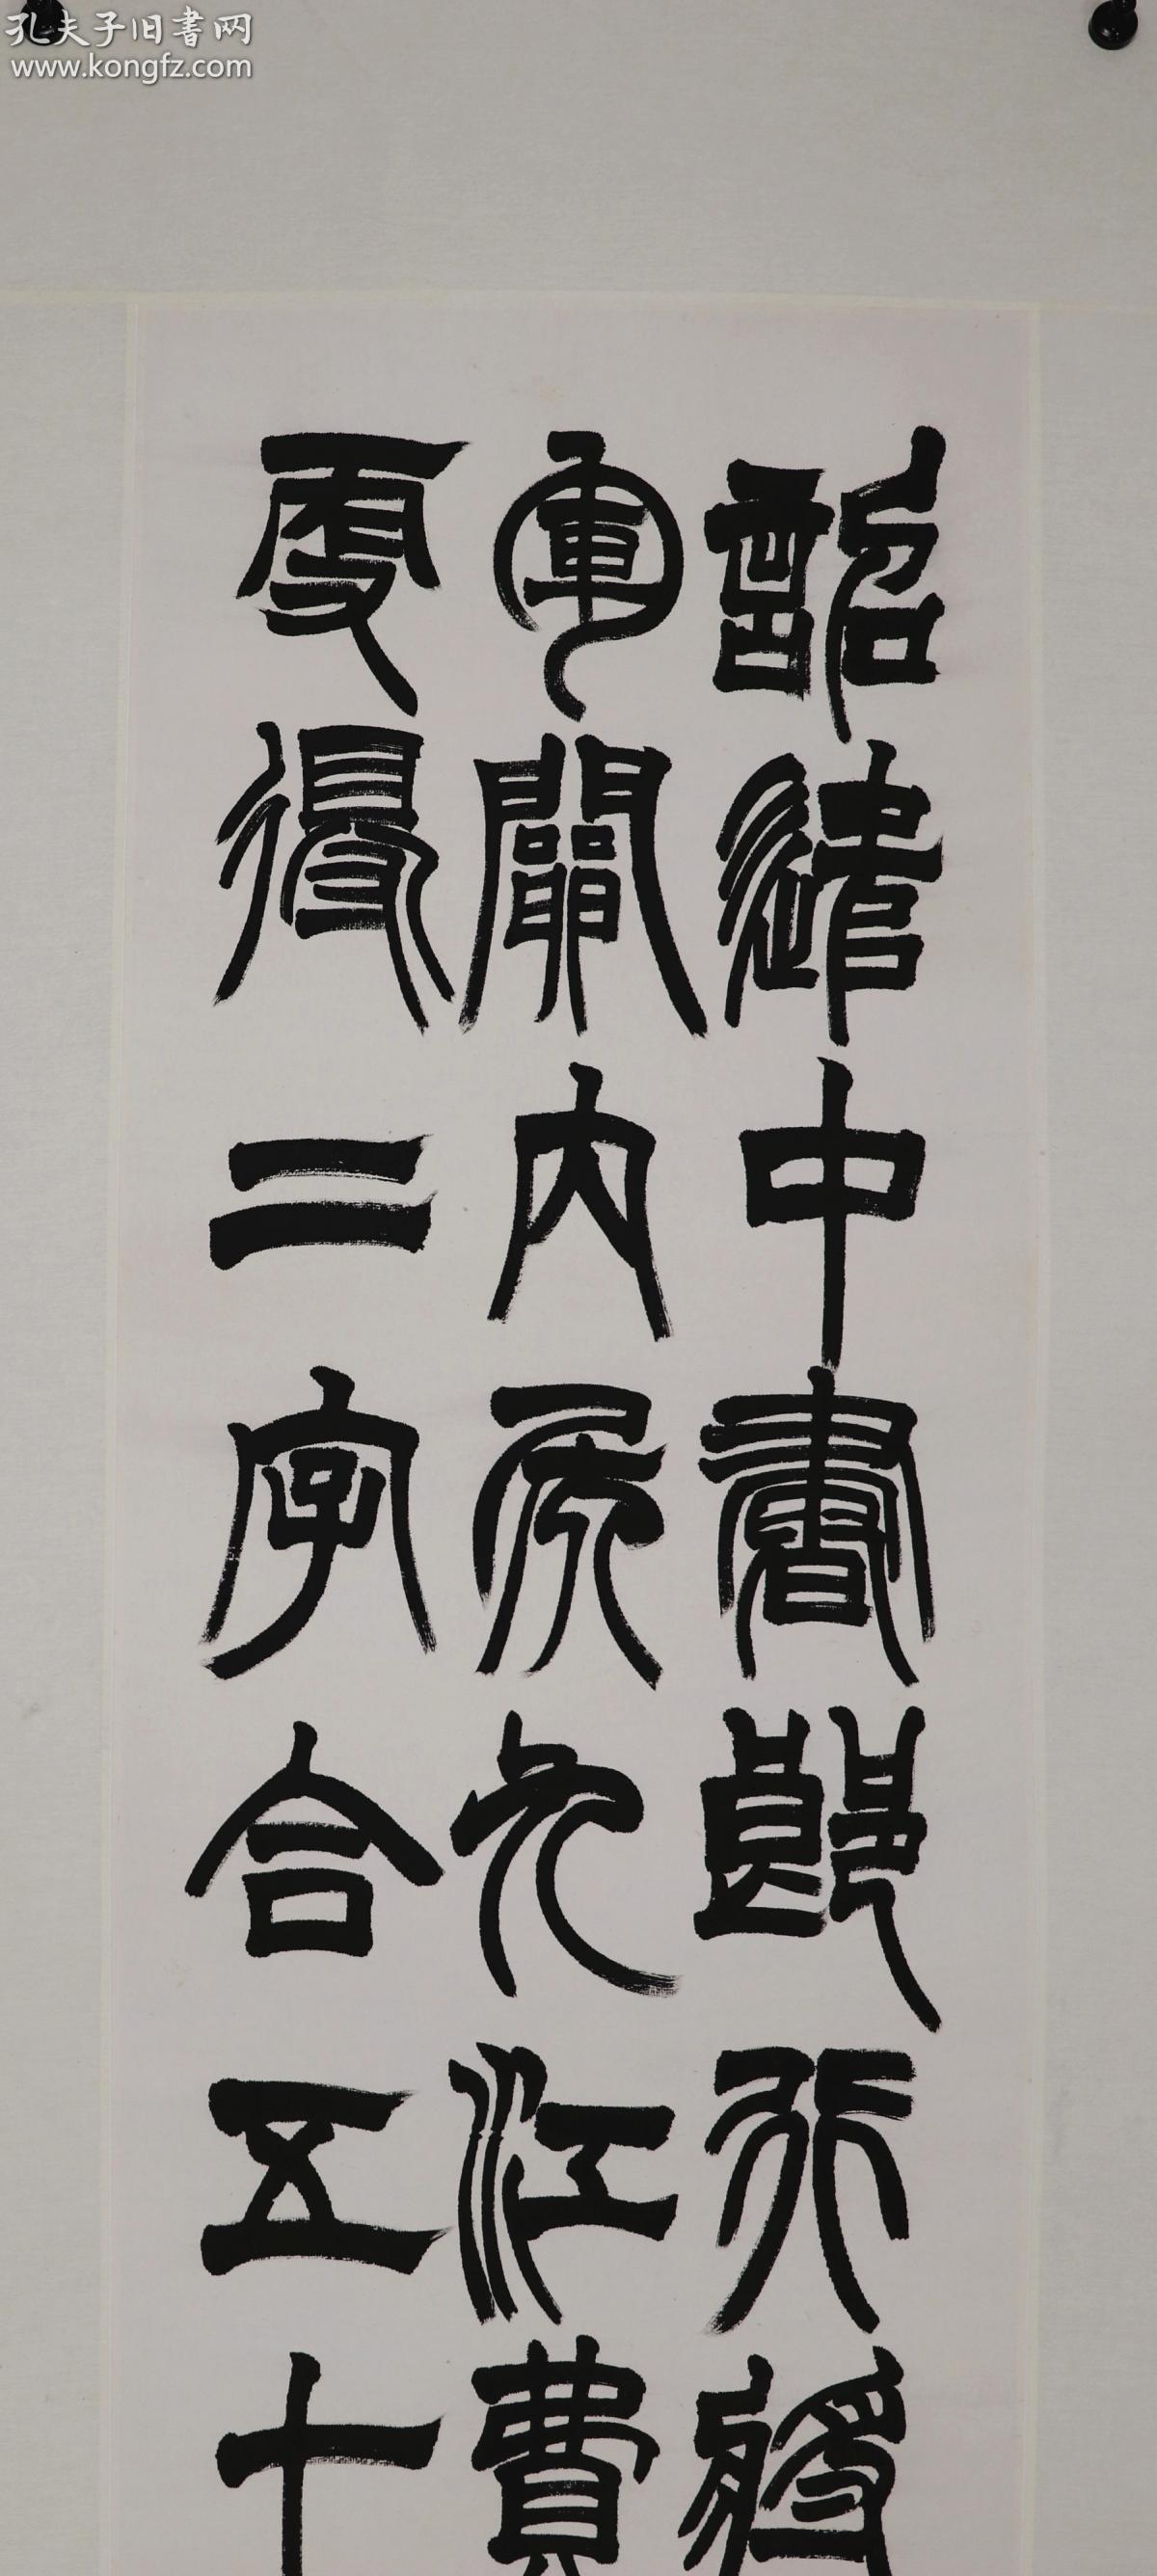 孔夫子旧書网
www.kongfz.com
詔遣中書郎行將
軍關內侯九江費
更得二字合五十